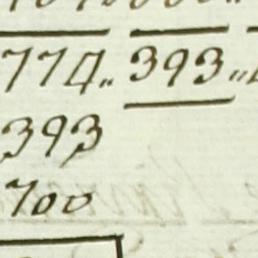 774,, 393,,
393
700